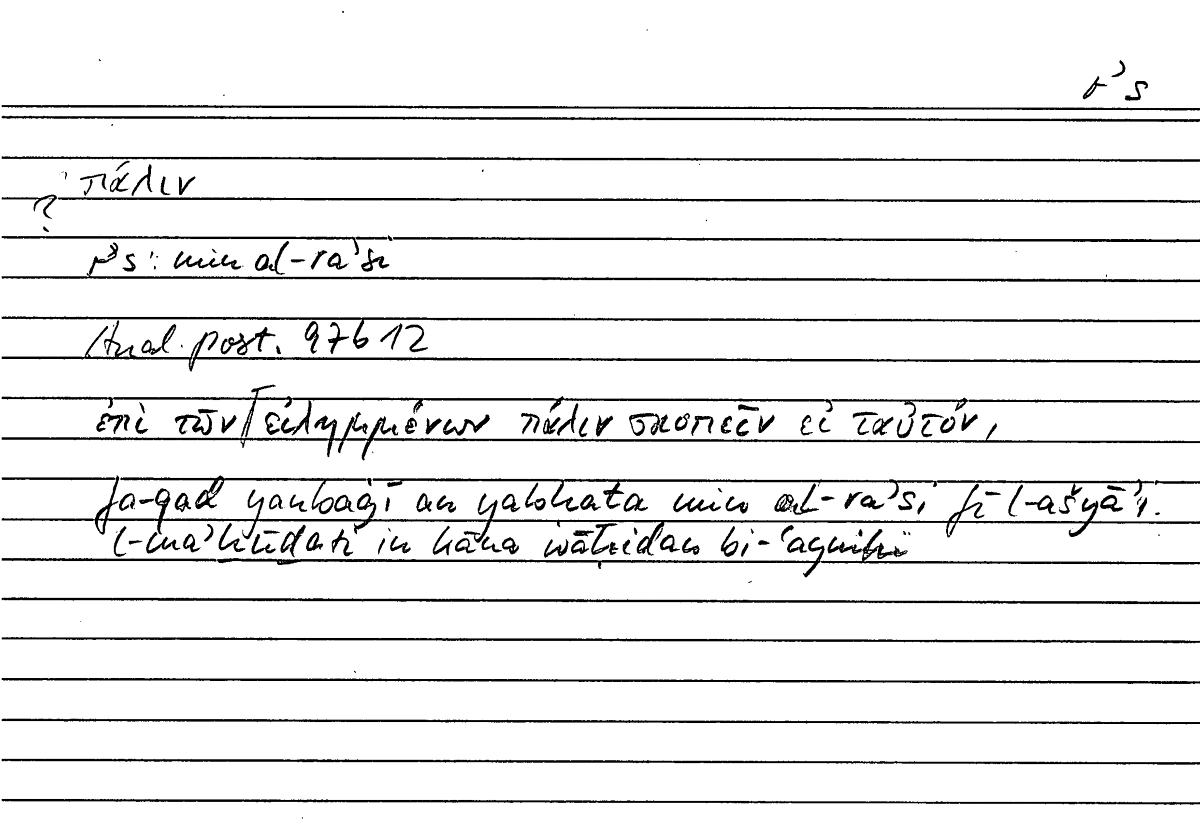 rʾs
πάλιν
?
rʾs: min al-raʾsi
Anal. post. 97b12
ἐπὶ τῶν εἰλημμένων πάλιν σκοπεῖν εἰ ταὐτόν,
fa-qad yanbaġī an yabḥaṯa min al-raʾsi fī l-ašyāʾi
l-maʾḫūḏati in kāna wāḥidan bi-ʿaynihī